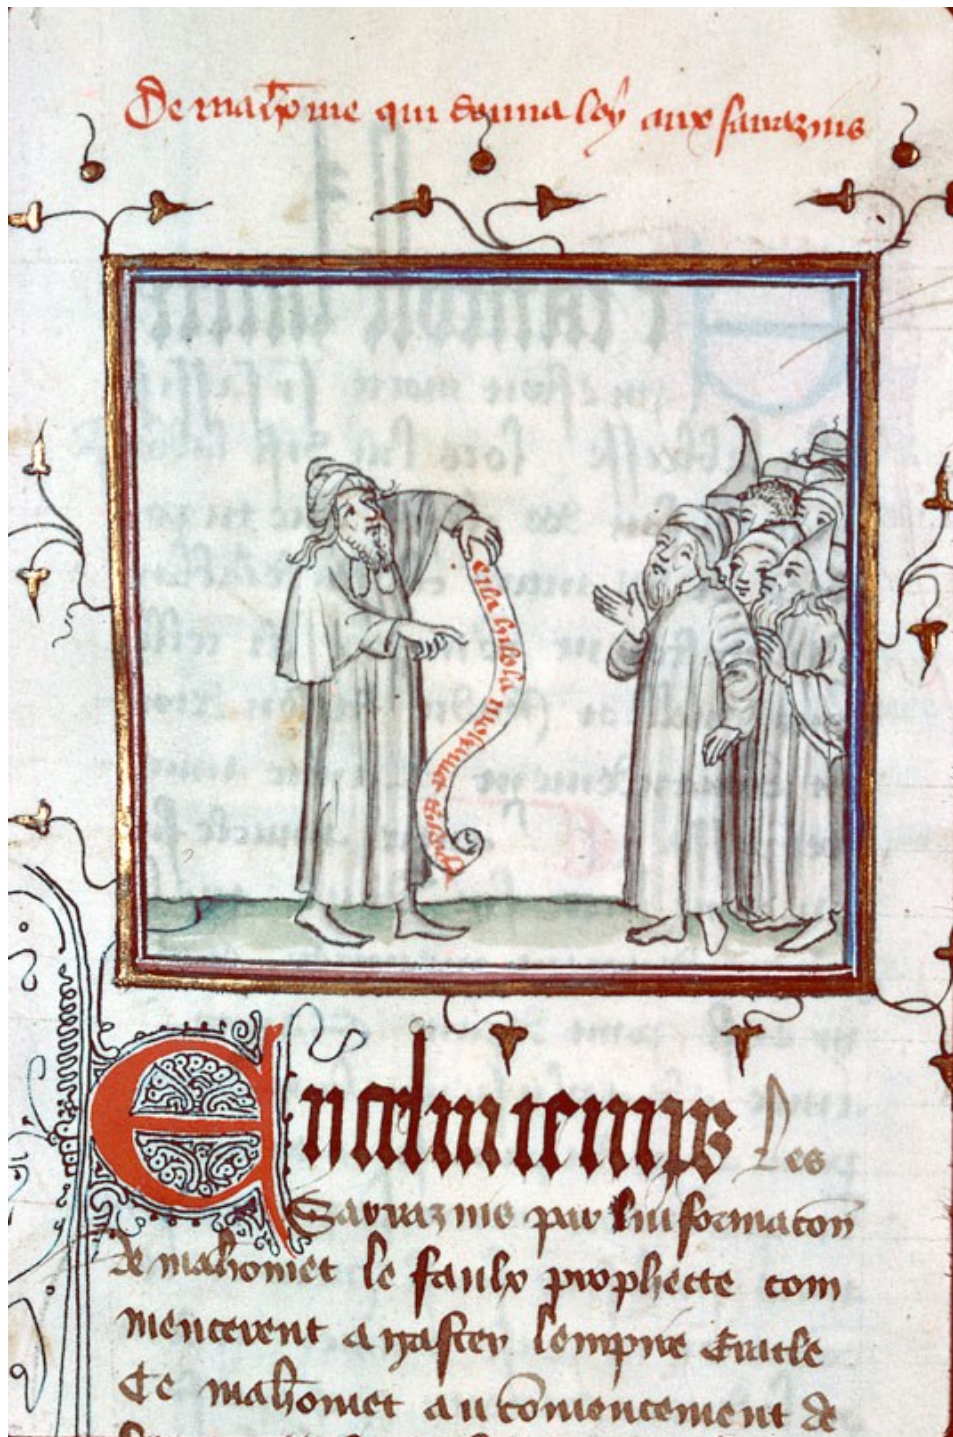 De mahome qui donna loy aux sarrazins
En celui temps Les
Sarrazins par linformacon
de mahomet le faulx prophecte com
mencerent a gaster lempire Eracle
Ce mahomet au commencement de